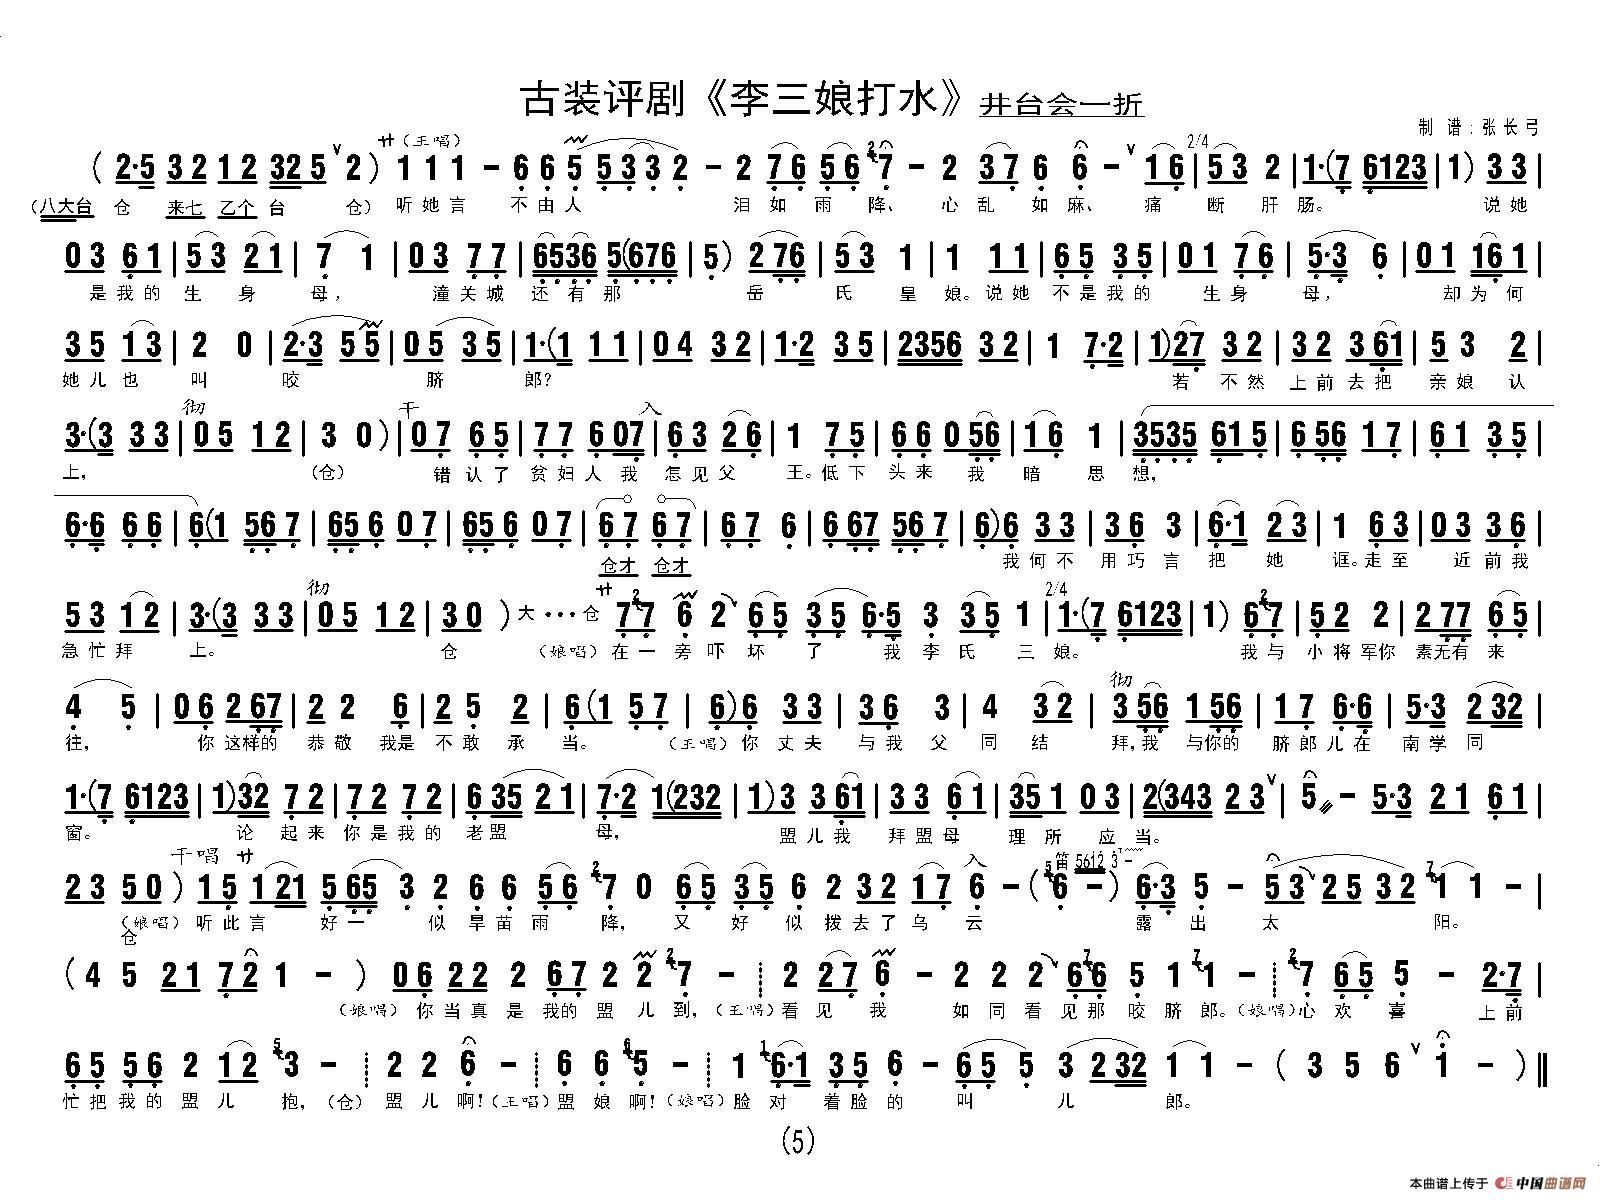 古装评剧《李三娘打水》井台会一折
制 谱:张长弓
廾(王唱) 2/4
(2·5 32 12 325 ∨ 2) 1 1 1 - 6 6 5 5 3 3 2 - 2 7 6 5 6 7 - 2 3 7 6 6 - ∨ 1 6 | 5 3 2 | 1·(7 6123 | 1) 3 3 |
(八大台 仓 来七 乙个 台 仓) 听她言 不由人 泪如雨降、心乱如麻、痛断肝肠。 说她
0 3 6 1 | 5 3 2 1 | 7 1 | 0 3 7 7 | 6536 5(676 | 5) 2 76 | 5 3 1 | 1 1 1 | 6 5 3 5 | 0 1 7 6 | 5·3 6 | 0 1 16 1 |
是我的生身母, 潼关城还有那 岳氏皇娘。说她不是我的生身母, 却为何
3 5 1 3 | 2 0 | 2·3 5 5 | 0 5 3 5 | 1·(1 1 1 | 0 4 3 2 | 1·2 3 5 | 2356 3 2 | 1 7·2 | 1)27 3 2 | 3 2 3 61 | 5 3 2 |
她儿也叫咬脐郎? 若不然上前去把亲娘认
彻 干 入
3·(3 3 3 | 0 5 1 2 | 3 0) | 0 7 6 5 | 7 7 6 07 | 6 3 2 6 | 1 7 5 | 6 6 0 56 | 1 6 1 | 3535 61 5 | 6 56 1 7 | 6 1 3 5 |
上, (仓) 错认了贫妇人我怎见父王。低下头来我暗思想,
6·6 6 6 | 6(1 56 7 | 65 6 0 7 | 65 6 0 7 | 6 7 6 7 | 6 7 6 | 6 67 56 7 | 6)6 3 3 | 3 6 3 | 6·1 2 3 | 1 6 3 | 0 3 3 6 |
仓才 仓才 我何不用巧言把她诓。走至近前我
彻 廾 2/4
5 3 1 2 | 3·(3 3 3 | 0 5 1 2 | 3 0 ) 大···仓 7 7 6 2 6 5 3 5 6·5 3 3 5 1 | 1·(7 6123 | 1) 6 7 | 5 2 2 | 2 77 6 5 |
急忙拜上。 仓 (娘唱)在一旁吓坏了我李氏三娘。 我与小将军你素无有来
彻
4 5 | 0 6 2 67 | 2 2 6 | 2 5 2 | 6(1 5 7 | 6)6 3 3 | 3 6 3 | 4 3 2 | 3 56 1 56 | 0 7 6·6 | 5·3 2 32 |
往, 你这样的恭敬我是不敢承当。 (王唱)你丈夫与我父同结拜,我与你的脐郎儿在南学同
1·(7 6123 | 1)32 7 2 | 7 2 7 2 | 6 35 2 1 | 7·2 1(232 | 1)3 3 61 | 3 3 6 1 | 35 1 0 3 | 2(343 2 3 ∨ | 5 - 5·3 2 1 6 1 |
窗。 论起来你是我的老盟母, 盟儿我拜盟母理所应当。
干唱 廾 入 笛 5612 3 -
2 3 5 0 ) 1 5 1 21 5 65 3 2 6 6 5 6 7 0 6 5 3 5 6 2 3 2 1 7 6 - ( 6 - ) 6·3 5 - 5 3 2 5 3 2 1 1 - |
(娘唱)听此言好一似旱苗雨降, 又好似拨去了乌云 露出太阳。
仓
(4 5 2 1 7 2 1 - ) 0 6 2 2 2 6 7 2 2 7 - ┊ 2 2 7 6 - 2 2 2 6 6 5 1 1 - ┊ 7 6 5 5 - 2·7 |
(娘唱)你当真是我的盟儿到,(王唱)看见我如同看见那咬脐郎。(娘唱)心欢喜上前
6 5 5 6 2 1 2 3 - ┊ 2 2 6 - ┊ 6 6 5 - ┊ 1 6·1 3 5 6 - 6 5 5 3 2 32 1 1 - ( 3 5 6 ∨ 1 - ) ‖
忙把我的盟儿抱,(仓)盟儿啊!(王唱)盟娘啊!(娘唱)脸对着脸的叫儿郎。
(5)
本曲谱上传于 中国曲谱网